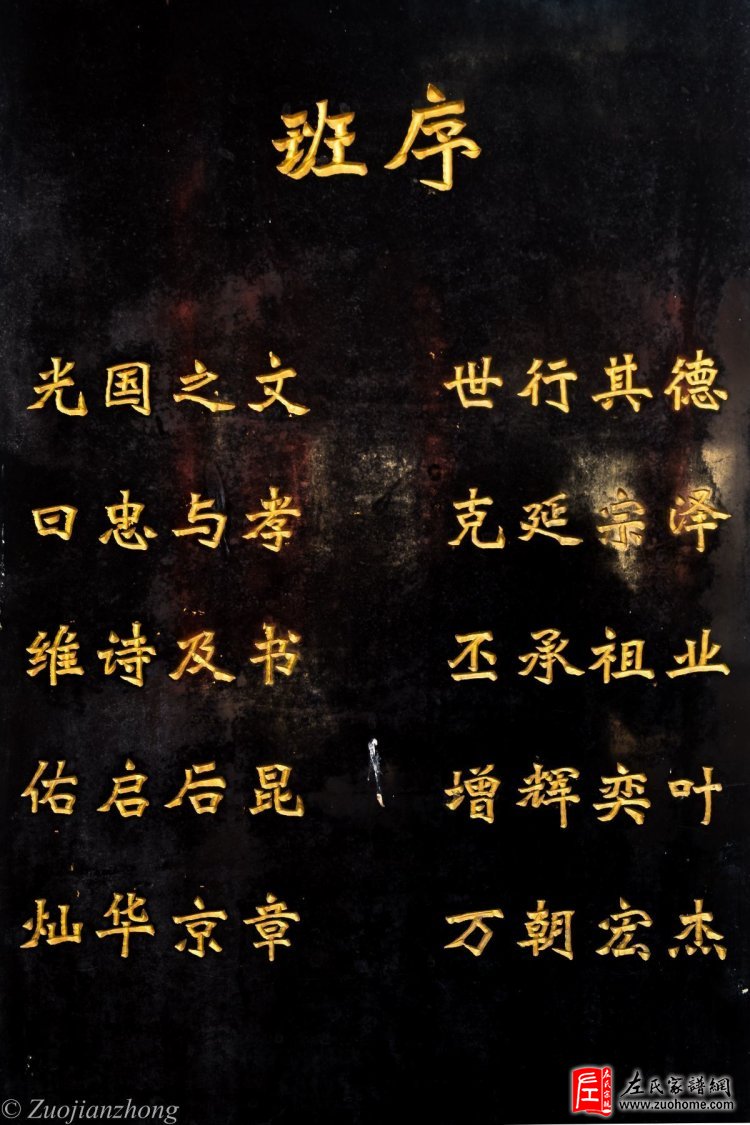 班序
光国之文 世行其德
曰忠与孝 克延宗泽
维诗及书 丕承祖业
佑启后昆 增辉奕叶
灿华京章 万朝宏杰
© Zuojianzhong
左氏家谱網
www.zuohome.com